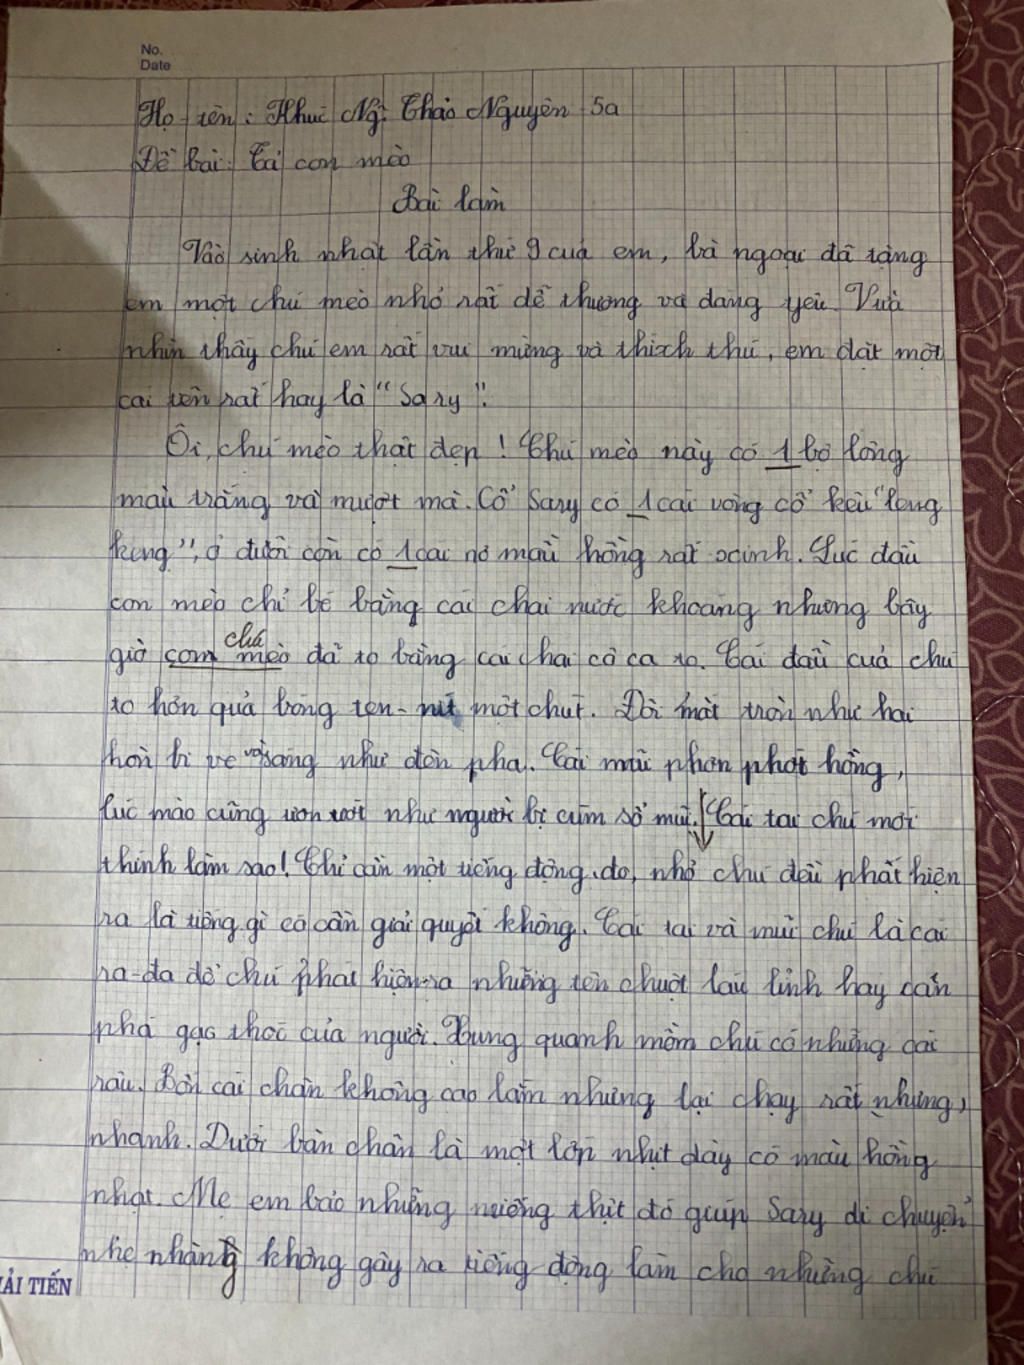 No.
Date
Họ tên: Khúc Ng̣ Thảo Nguyên 5a
Đề bài: Tả con mèo
Bài làm
Vào sinh nhật lần thứ 9 của em, bà ngoại đã tặng
em một chú mèo nhỏ rất dễ thương và đáng yêu. Vừa
nhìn thấy chú em rất vui mừng và thích thú, em đặt một
cái tên rất hay là "Sary".
Ôi, chú mèo thật đẹp! Chú mèo này có 1 bộ lông
màu trắng và mượt mà. Cổ Sary có 1 cái vòng cổ kêu "leng
keng", ở dưới còn có 1 cái nơ màu hồng rất xinh. Lúc đầu
con mèo chỉ bé bằng cái chai nước khoáng nhưng bây
giờ con chú mèo đã to bằng cái chai cô ca to. Cái đầu của chú
to hơn quả bóng ten-nít một chút. Đôi mắt tròn như hai
hòn bi ve và sáng như đèn pha. Cái mũi phơn phớt hồng,
lúc nào cũng ươn ướt như người bị cúm sổ mũi. Cái tai chú mới
thính làm sao! Chỉ cần một tiếng động do, nhỏ chú đều phát hiện
ra là tiếng gì có cần giải quyết không. Cái tai và mũi chú là cái
ra-đa để chú phát hiện ra những tên chuột láu lỉnh hay cắn
phá gạo thóc của người. Xung quanh mồm chú có những cái
râu. Bốn cái chân không cao lắm nhưng lại chạy rất nhưng,
nhanh. Dưới bàn chân là một lớp nhịt dày có màu hồng
nhạt. Mẹ em bảo những miếng thịt đó giúp Sary di chuyển
nhẹ nhàng không gây ra tiếng động làm cho những chú
ẢI TIẾN